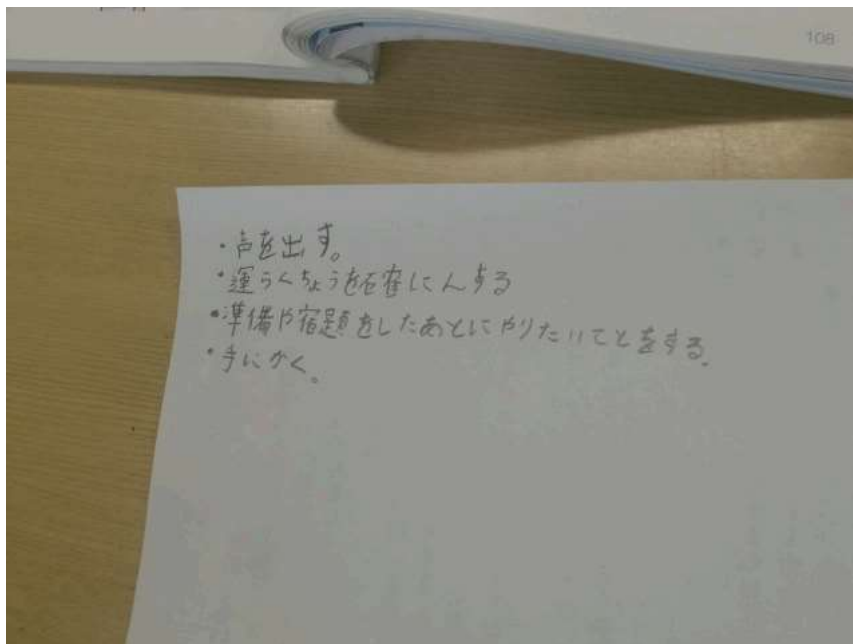 108
・声を出す。
・運らくちょうを確にんする
・準備や宿題をしたあとにやりたいことをする.
・手にかく。